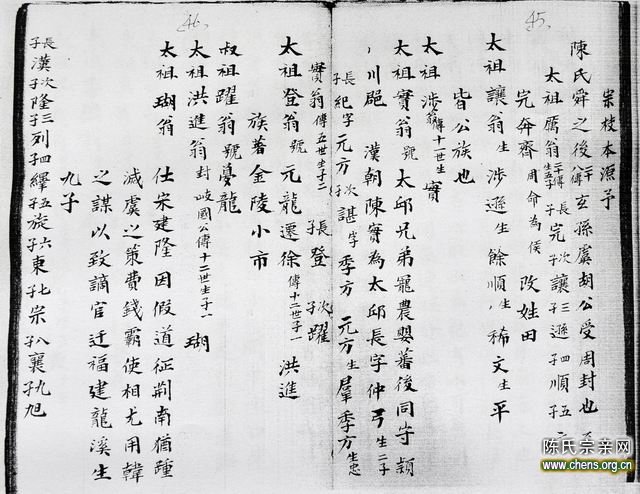 45,
崇枝本源予
陳氏舜之後玄孫虞胡公受周封也
太祖厲翁 長子完次子讓三子遜四子順五
完奔齊 周命為侯 改姓田
太祖讓翁生涉遜生餘順生稀文生平
皆公族也
太祖涉翁傳十一世生實
太祖實翁號太邱兄弟寵農嬰蕃後同守穎
川郡 漢朝陳實為太邱長字仲弓生二子
長子紀字元方次子諶字季方 元方生羣季方生忠
46,
實翁傳五世生子二 長子登 次子躍
太祖登翁號元龍遷徐傳十二世生子一 洪進
族著金陵小市
叔祖躍翁號憂龍
太祖洪進翁封岐國公傳十二世生子一 瑚
太祖瑚翁 仕宋建隆因假道征荆南猶踵
滅虞之策費錢霸使相尤用韓
之謀以致謫官迁福建龍溪生
九子
長子漢次子隆三子列四子繹五子旋六子東七子崇八子襄九子旭
陈氏宗亲网
www.chens.org.cn